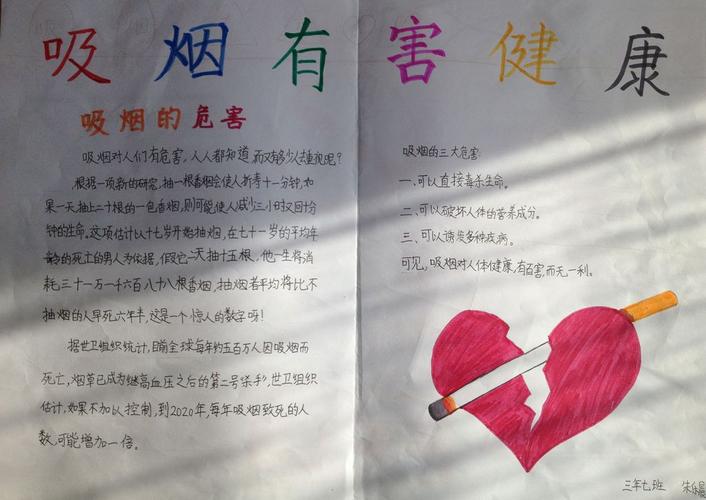 吸烟有害健康
吸烟的危害
吸烟对人们有危害,人人都知道,而又有多少人去重视呢?
根据一项新的研究,抽一根香烟会使人折寿十一分钟,如
果一天抽上二十根的一包香烟,则可能使人减少三小时又四十分
钟的生命。这项估计以十七岁开始抽烟,在七十一岁的平均年
龄的死亡的男人为依据,假定一天抽十五根,他一生将消
耗三十一万一千六百八十八根香烟,抽烟者平均将比不
抽烟的人早死六年半,这是一个惊人的数字呀!
据世卫组织统计,目前全球每年约五百万人因吸烟而
死亡,烟草已成为继高血压之后的第二号杀手,世卫组织
估计,如果不加以控制,到2020年,每年吸烟致死的人
数,可能增加一倍。
吸烟的三大危害:
一、可以直接毒杀生命。
二、可以破坏人体的营养成分。
三、可以诱发多种疾病。
可见,吸烟对人体健康,有百害,而无一利。
三年七班 朱